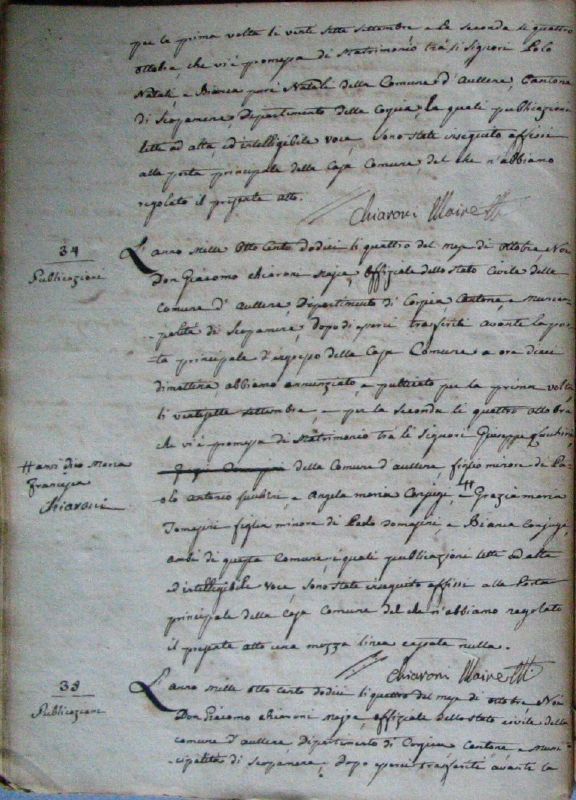 per la prima volta li venti sette settembre e la seconda li quattro
ottobre, che vi è promessa di Matrimonio tra li Signori Polo
Natali, e Bianca pari Natali della Comune d'Aullene, Cantone
di Scopamene, Dipartimento della Corsica, la quali publicazione
lette ad alta, ed intelligibile voce, sono state inseguito affissi
alla porta principale della Casa Comune, del che n'abbiamo
regolato il presente atto.
Chiaroni Maire
34
Publicazioni
L'anno Mille Otto Cento dodici li quattro del mese di Ottobre, Noi
Don Giacomo Chiaroni Maire, Offiziale dello Stato Civile della
Comune d'Aullene, Dipartimento di Corsica, Cantone, e Munici
palità di Scopamene, dopo di esserci trasferiti avante la por
ta principale d'ingresso della Casa Comune a ore dieci
di mattina, abbiamo annunziato, e publicato per la prima volta
li ventisette settembre e per la seconda li quattro ottobre
che vi è promessa di Matrimonio tra li Signori Giuseppe
della Comune d'aullene, figlio minore di Pa
olo Antonio e Angela maria Conjugi, e # Grazia maria
figlia minore di Paolo e Bianca Conjugi,
ambi di questa Comune, i quali publicazioni lette ad alta
ed intelligibile voce sono state inseguito affissi alla Porta
principale della Casa Comune del che n'abbiamo regolato
il presente atto una mezza linea cassata nulla.
Chiaroni Maire
# anzi dico Maria
Francesca
Chiaroni
35
Publicazioni
L'anno Mille otto Cento dodici li quattro del mese di ottobre Noi
Don Giacomo Chiaroni Maire, offiziale dello Stato civile della
comune d'aullene, Dipartimento di Corsica Cantone, e Muni
cipalità di Scopamene, dopo esserci trasferiti avante la